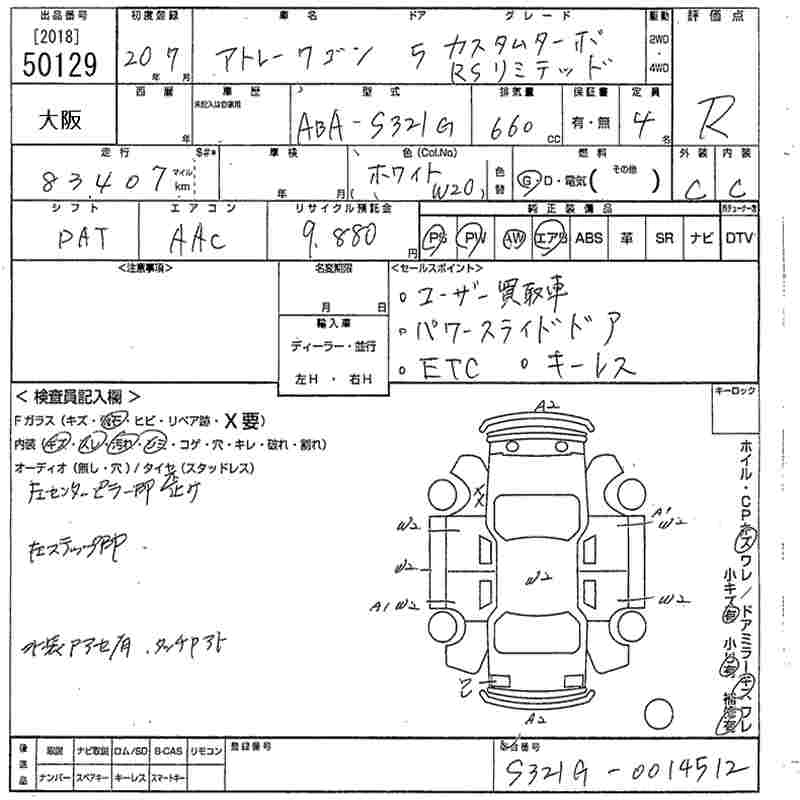 出品番号 初度登録 車名 ドア グレード 駆動 評価点
[2018]
50129
20年 7月
アトレーワゴン 5 カスタムターボ
RSリミテッド
2WD
・
4WD
大阪 西暦 車歴 型式 排気量 保証書 定員
未記入は自家用
年 ABA-S321G 660cc 有・無 4名 R
走行 S#* 車検 色(Col.No) 燃料 外装 内装
83407 マイル km 年 月 ホワイト (W20) 色替 G・D・電気( その他 ) C C
シフト エアコン リサイクル預託金 純正装備品
DAT AAC 9.880円 PS PW AW エアB ABS 革 SR ナビ DTV
<注意事項> 名変期限 <セールスポイント>
月 日
輸入車
ディーラー・並行
左H ・ 右H
。ユーザー買取車
。パワースライドドア
。ETC 。キーレス
< 検査員記入欄 > キーロック
Fガラス(キズ・飛石・ヒビ・リペア跡・X要)
内装(キズ・スレ・汚れ・シミ・コゲ・穴・キレ・破れ・割れ)
オーディオ(無し・穴)/タイヤ(スタッドレス)
左センターピラー部
左ステップ部
A2
XX
A1
W2 W2
W2 W2
A1 W2 W2
A2
ホイル・CPキズ ワレ / ドアミラーキズ ワレ
後送品 取説 ナビ取説 ロム/SD B-CAS リモコン 登録番号
ナンバー スペアキー キーレス スマートキー
車台番号
S321G-0014512